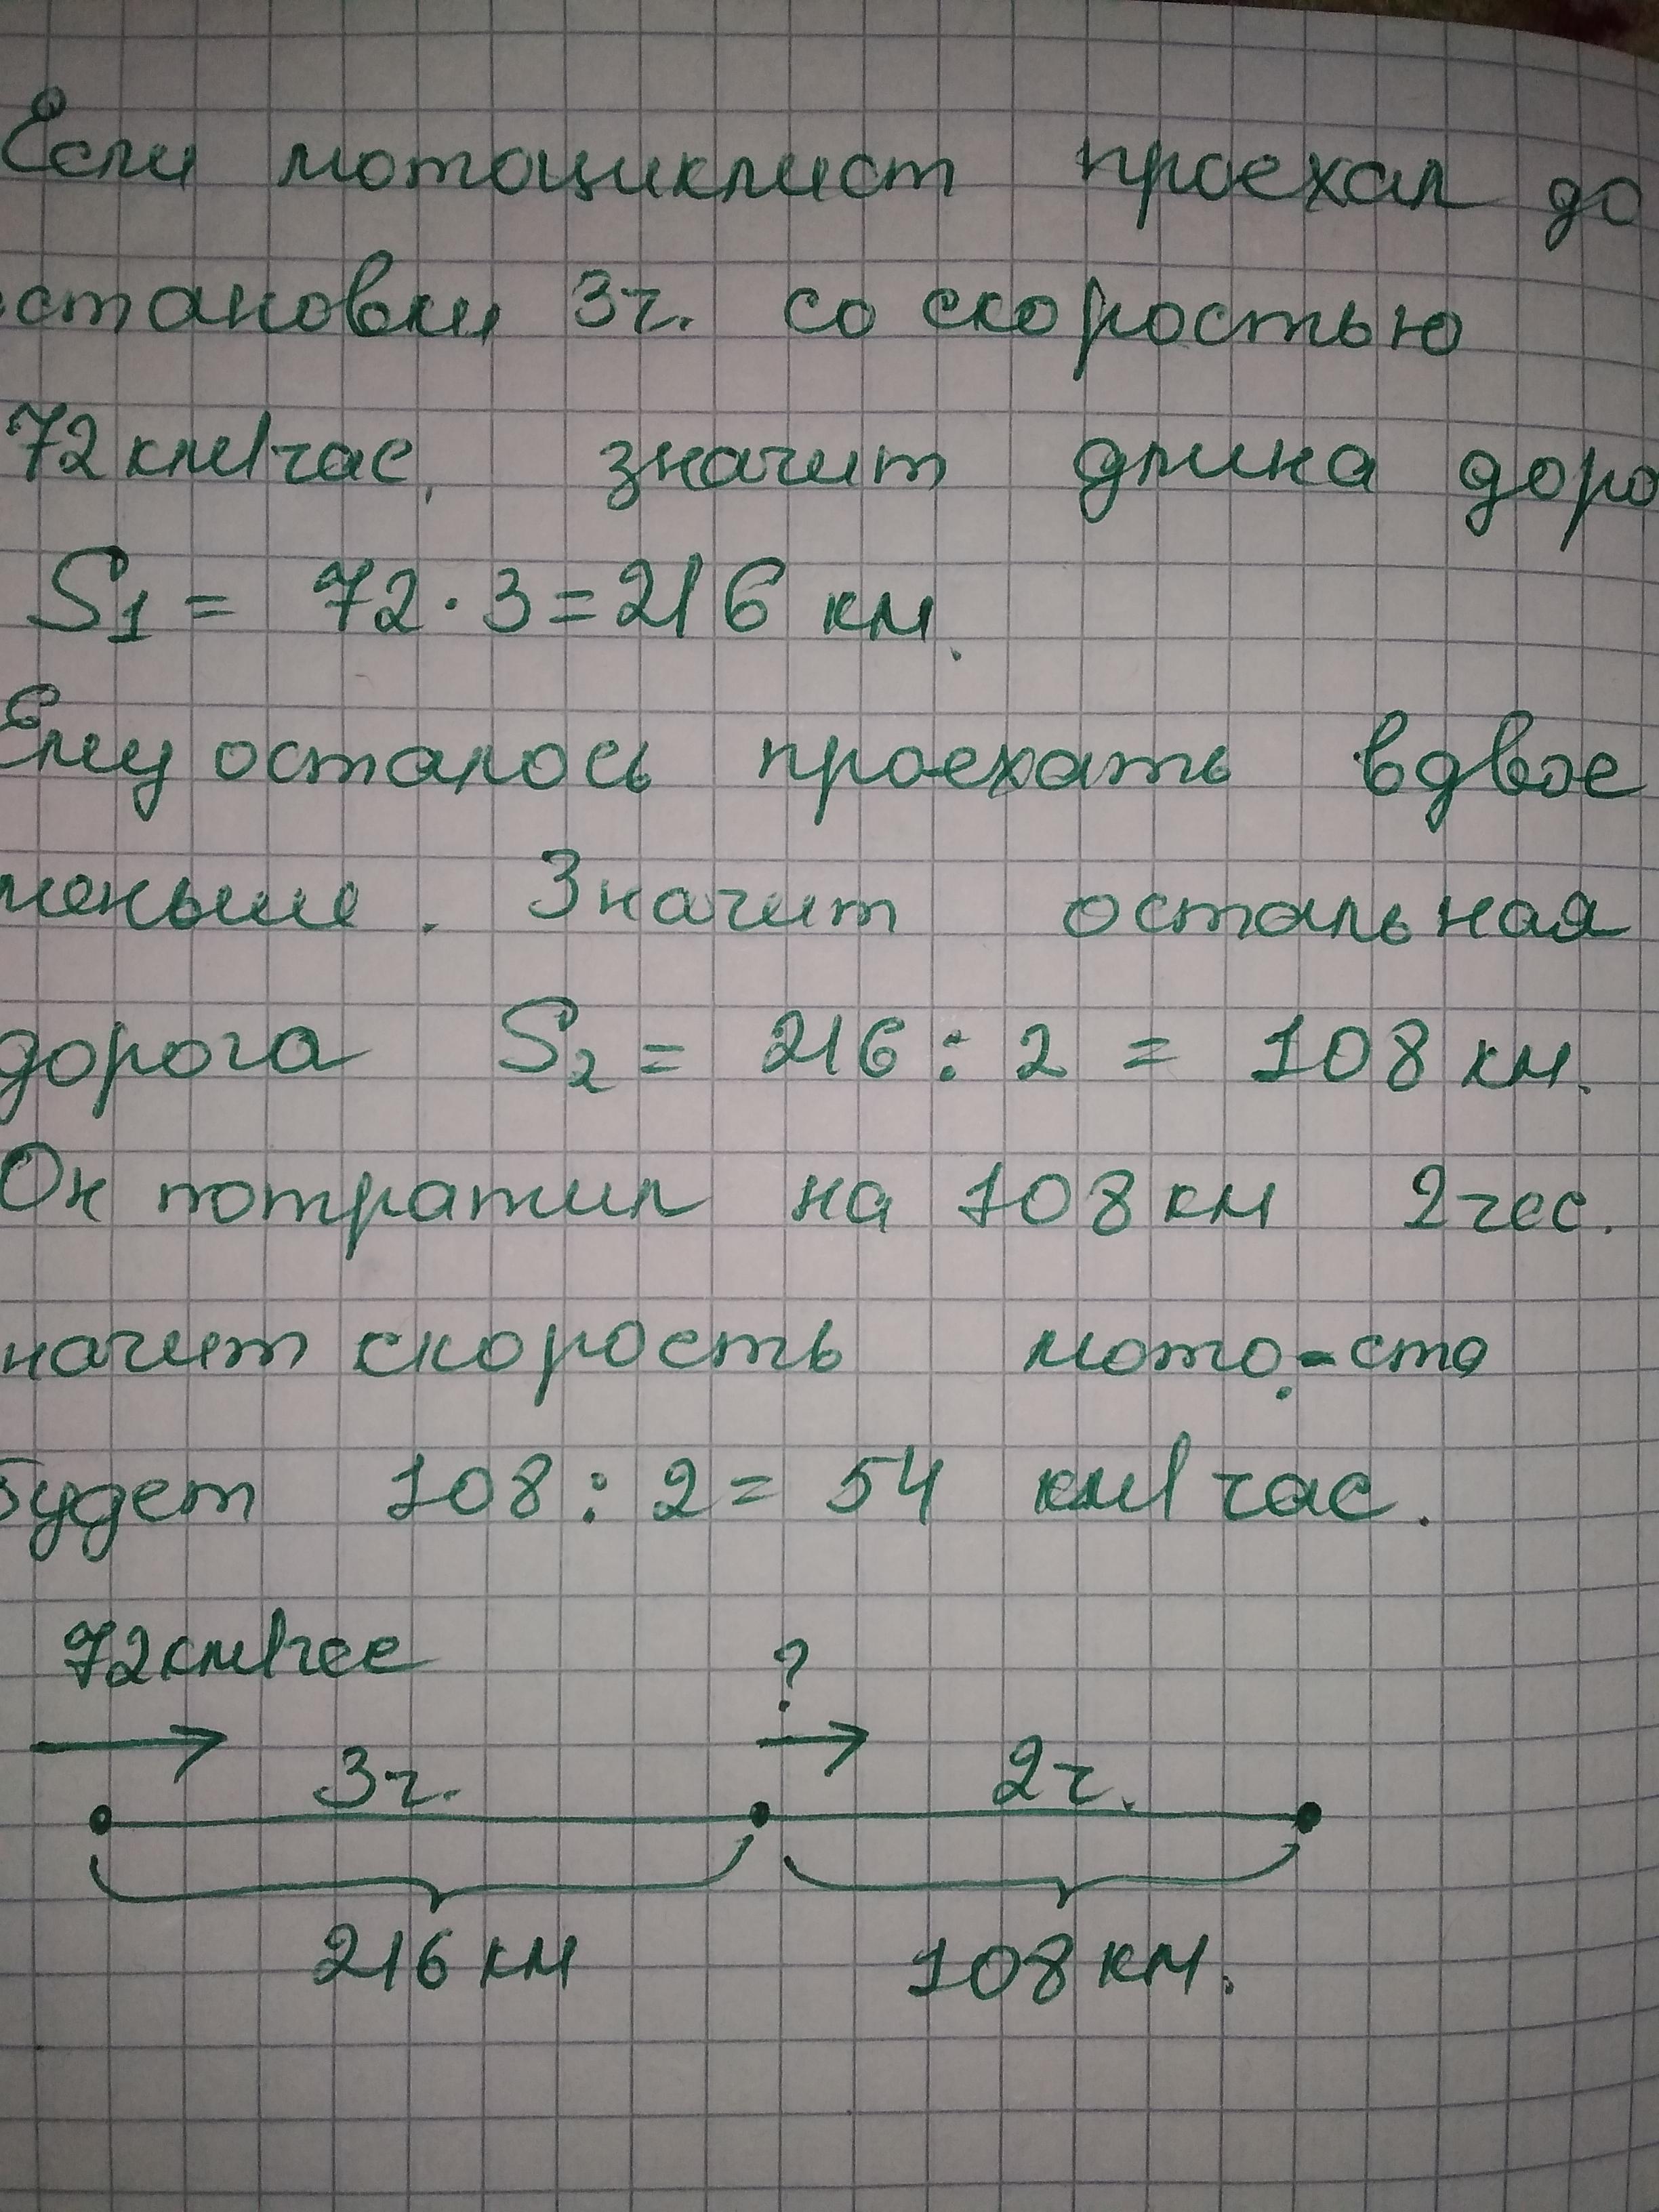 Если мотоциклист проехал до
становки 3ч. со скоростью
72км/час, значит длина доро
S1 = 72·3=216 км.
Ему осталось проехать вдвое
меньше. Значит остальная
дорога S2 = 216 : 2 = 108 км.
Он потратил на 108 км 2 час.
начит скорость мото.-ста
будет 108 : 2 = 54 км/час.
72км/час ?
3ч. 2ч.
216 км 108 км.